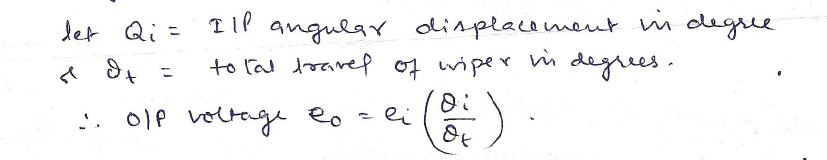 let Qi = I/P angular displacement in degree
& θt = total travel of wiper in degrees.
∴ O/P voltage eo = ei (θi/θt).